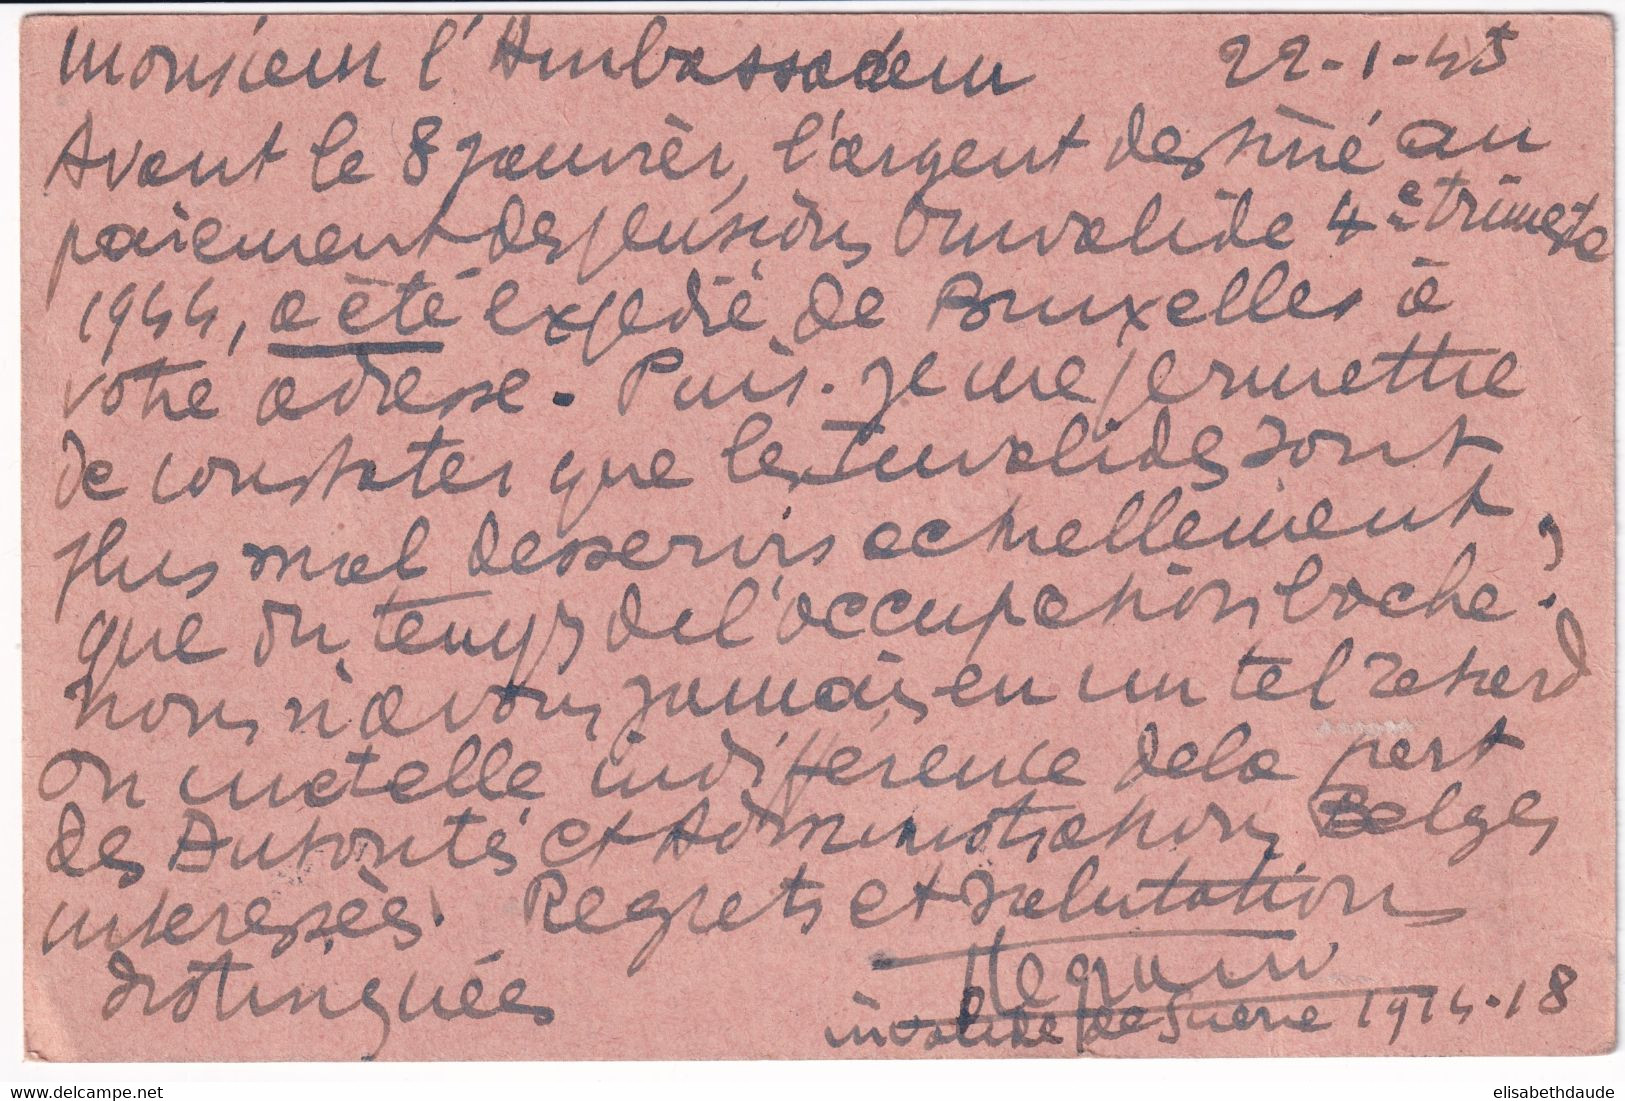 Monsieur l'Ambassadeur 22-1-45
Avant le 8 janvier, l'argent destiné au
paiement des pensions Invalide 4e trimestre
1944, a été expédié de Bruxelles à
votre adresse. Puis-je me permettre
de constater que les Invalides sont
plus mal desservis actuellement,
que du temps de l'occupation boche!
nous n'avons jamais eu un tel retard
ou une telle indifférence de la part
des Autorités et Administrations Belges
intéressées. Regrets et salutations
distinguées
invalide de guerre 1914-18
www.delcampe.net
elisabethdaude